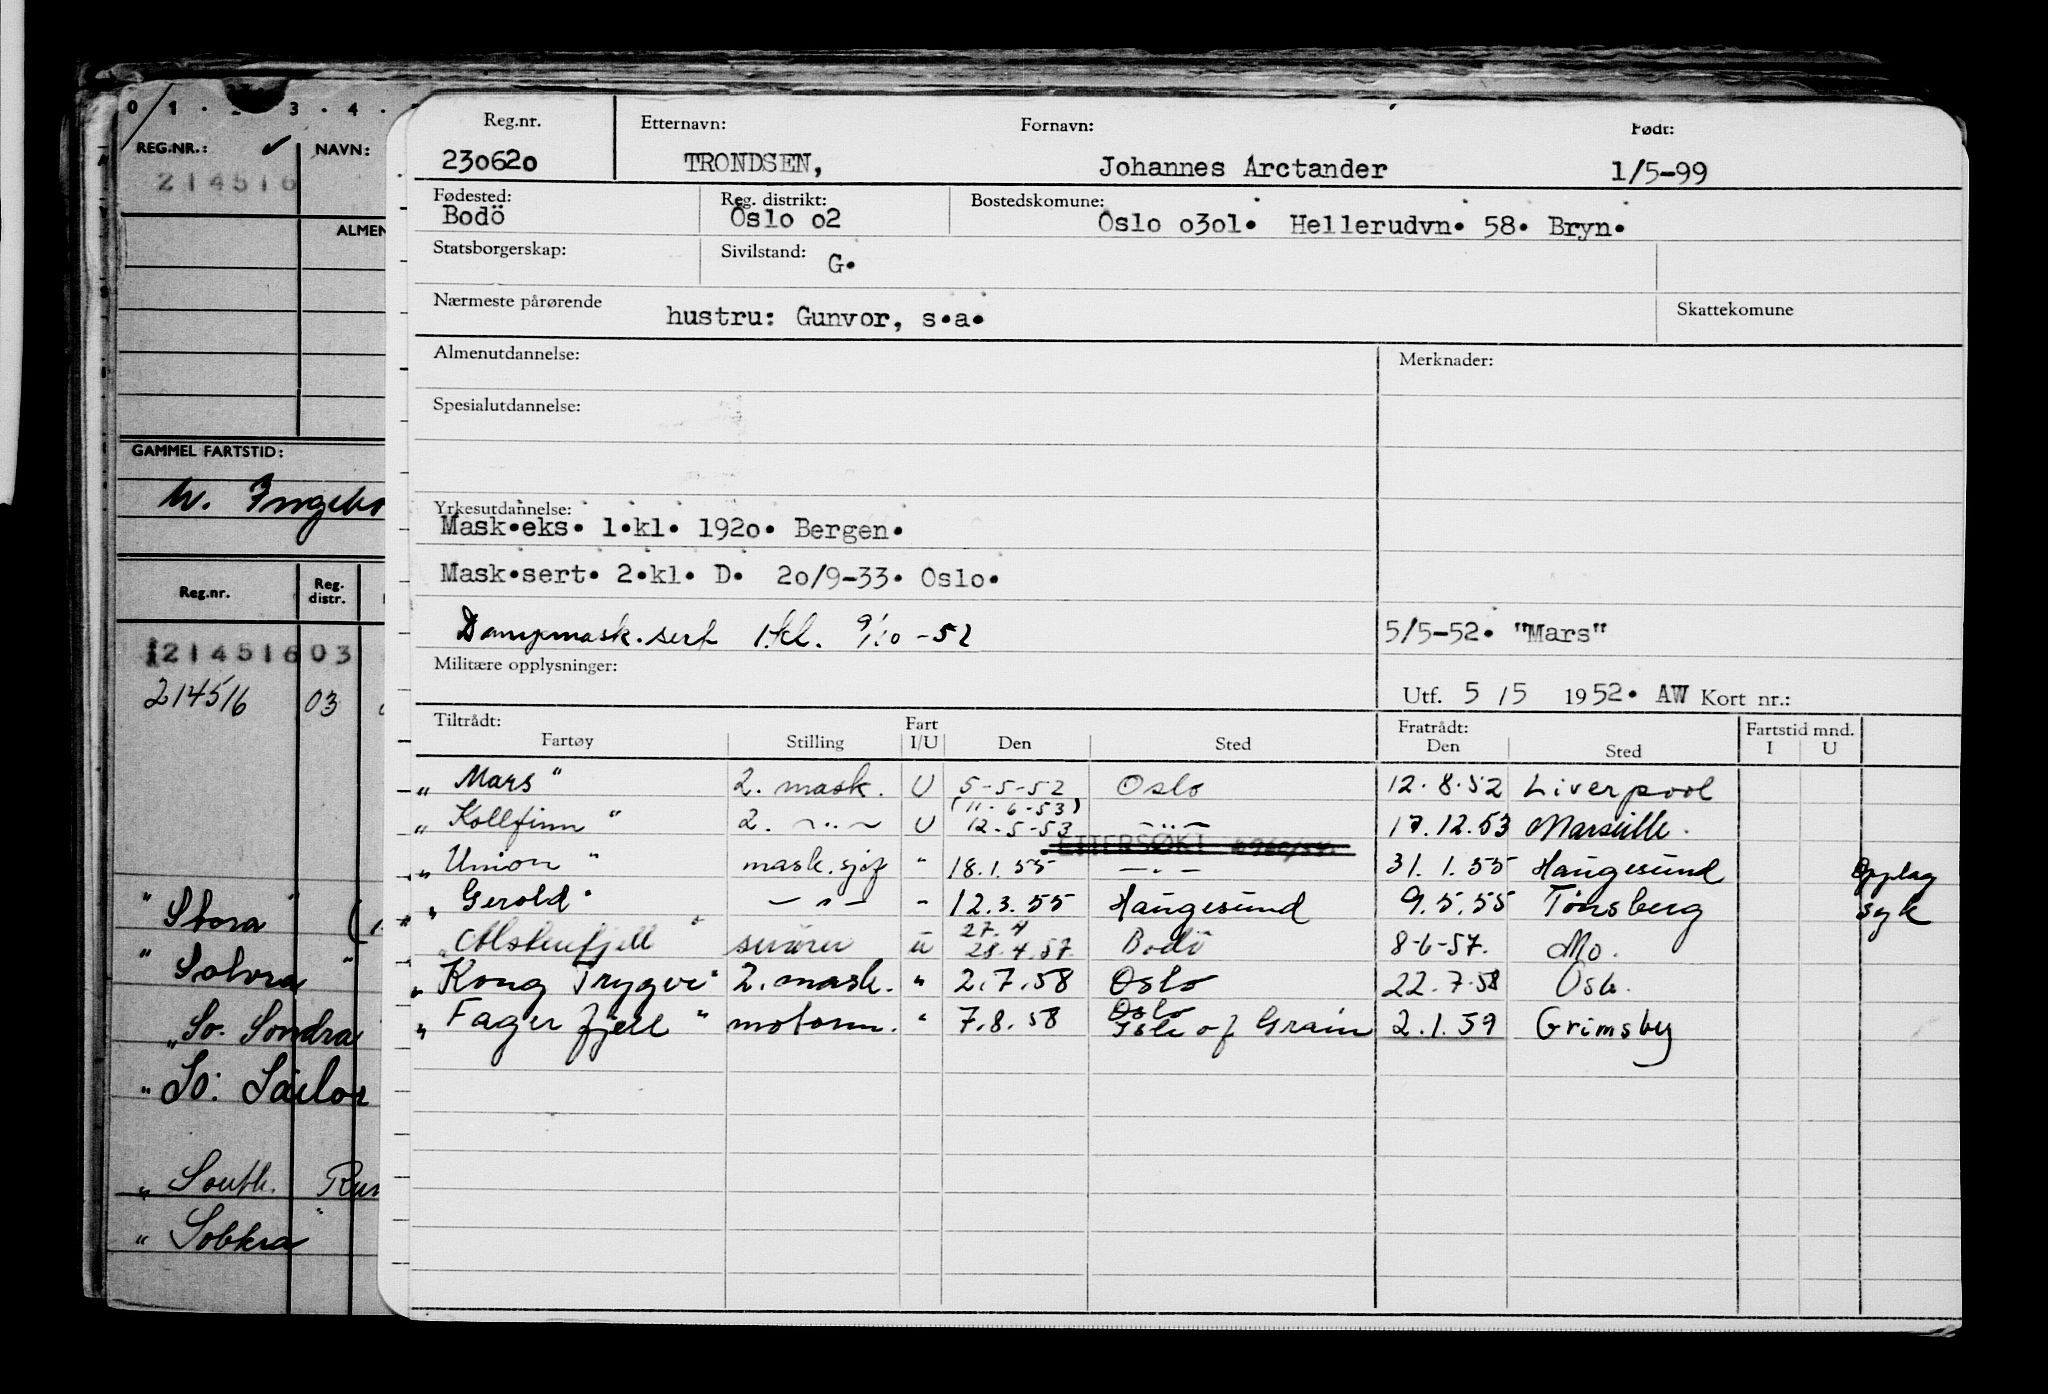 0 1 · 3 · 4 ·
REG.NR.: NAVN:
214516
ALMEN
GAMMEL FARTSTID:
Reg.nr. Reg. distr.
121451603
214516 03
" Stora "
" Solvra "
" So. Sondra
" So: Sailor
" South.
" Sobkra "
Reg.nr. Etternavn: Fornavn: Født:
230620 TRONDSEN, Johannes Arctander 1/5-99
Fødested: Reg. distrikt: Bostedskomune:
Bodö Oslo o2 Oslo o3o1. Hellerudvn. 58. Bryn.
Statsborgerskap: Sivilstand: G.
Nærmeste pårørende Skattekomune
hustru: Gunvor, s.a.
Almenutdannelse: Merknader:
Spesialutdannelse:
Yrkesutdannelse:
Mask.eks. 1.kl. 192o. Bergen.
Mask.sert. 2.kl. D. 2o/9-33. Oslo.
Dampmask.sert 1.kl. 9/10-52 5/5-52. "Mars"
Militære opplysninger:
Utf. 5 /5 1952. AW Kort nr.:
Tiltrådt: Fart Fratrådt: Fartstid mnd.
Fartøy Stilling I/U Den Sted Den Sted I U
" Mars " 2. mask. U 5-5-52 Oslo 12.8.52 Liverpool
(11-6-53)
" Kollfinn " 2. -"- U 12-5-53 -"- 17.12.53 Marseille.
ETTERSØKT
" Union " mask.sjef " 18.1.55 -"- 31.1.55 Haugesund Opplag
" Gerold " -"- " 12.3.55 Haugesund 9.5.55 Tønsberg syk
27.4
" Alstenfjell " smører u 28.4.57 Bodö 8-6-57. Mo.
" Kong Trygve " 2. mask. " 2.7.58 Oslo 22.7.58 Oslo.
Oslo
" Fagerfjell " motorm. " 7.8.58 Isle of Grain 2.1.59 Grimsby